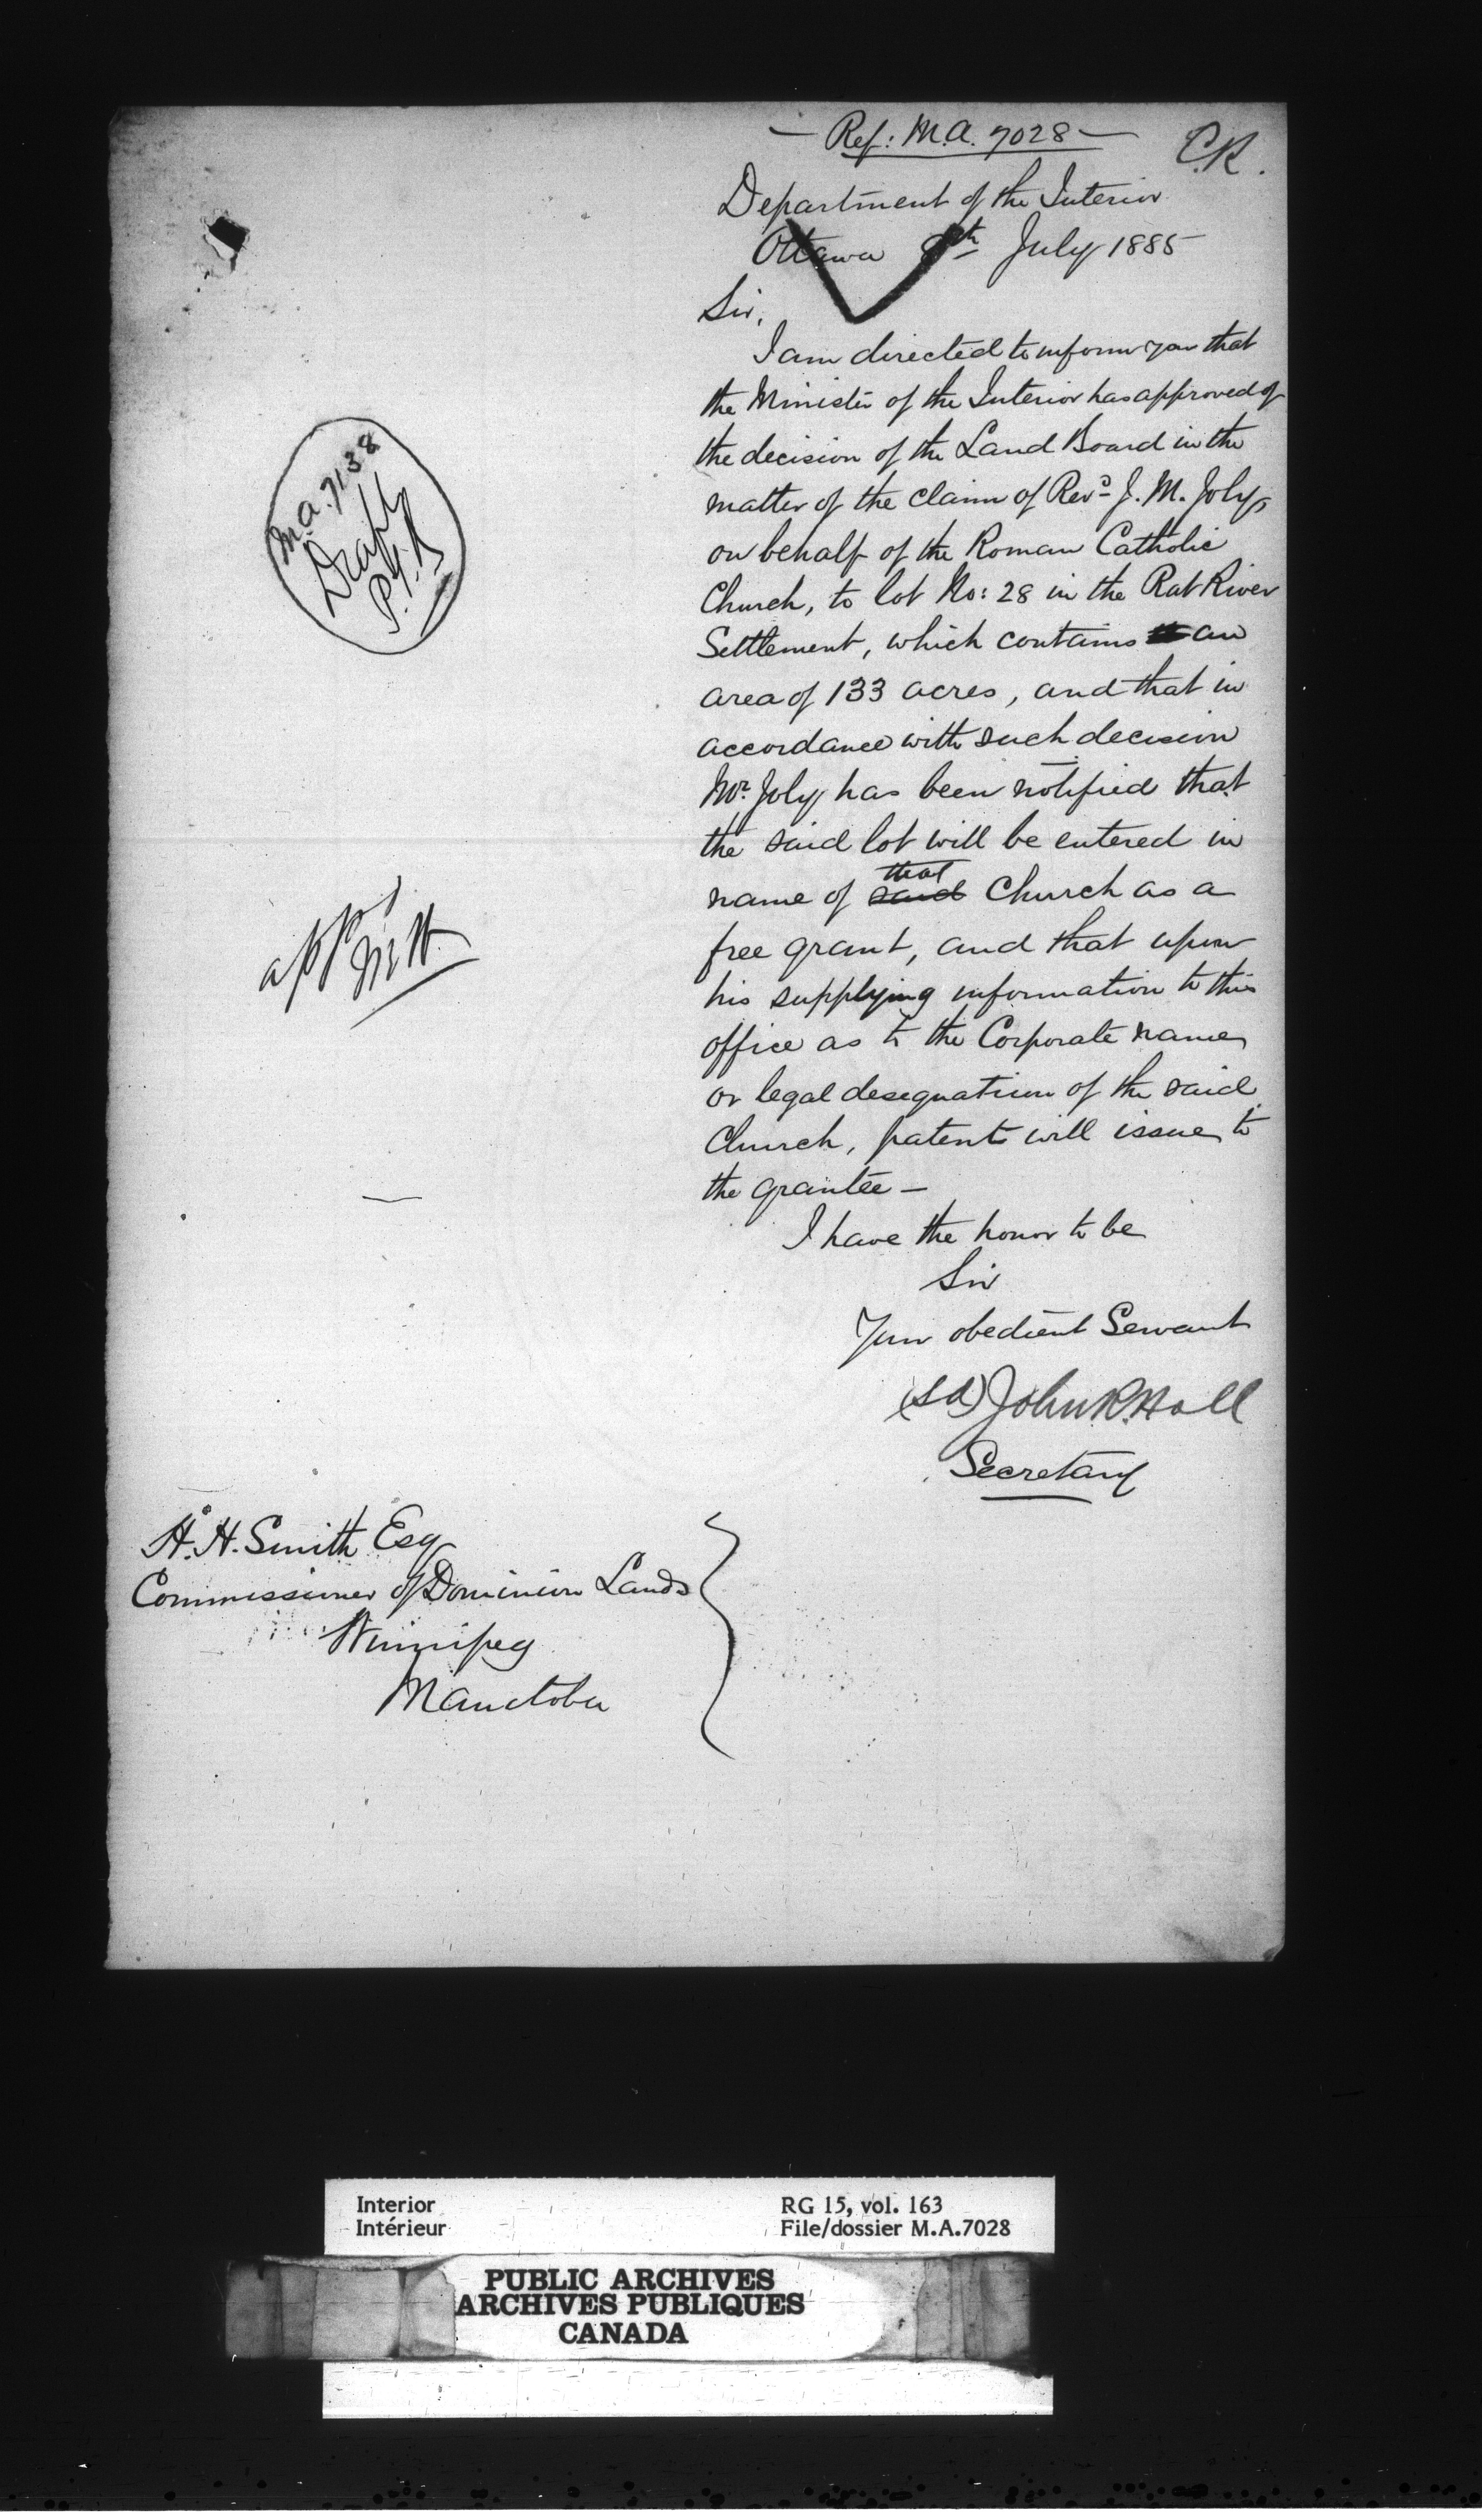 — Ref: M.A. 7028 —
C.R.
Department of the Interior
Ottawa 8th July 1885
Sir,
I am directed to inform you that
the Minister of the Interior has approved of
the decision of the Land Board in the
matter of the claim of Revd J. M. Joly,
on behalf of the Roman Catholic
Church, to lot No: 28 in the Rat River
Settlement, which contains an
area of 133 acres, and that in
accordance with such decision
Mr. Joly has been notified that
the said lot will be entered in
name of said that Church as a
free grant, and that upon
his supplying information to this
office as to the Corporate name
or legal designation of the said
Church, patent will issue to
the grantee —
I have the honor to be
Sir
Your obedient Servant
(sd) John R. Hall
Secretary
M.A. 7138
Draft
appd
H. H. Smith Esq
Commissioner of Dominion Lands
Winnipeg
Manitoba
Interior
Intérieur
RG 15, vol. 163
File/dossier M.A.7028
PUBLIC ARCHIVES
ARCHIVES PUBLIQUES
CANADA